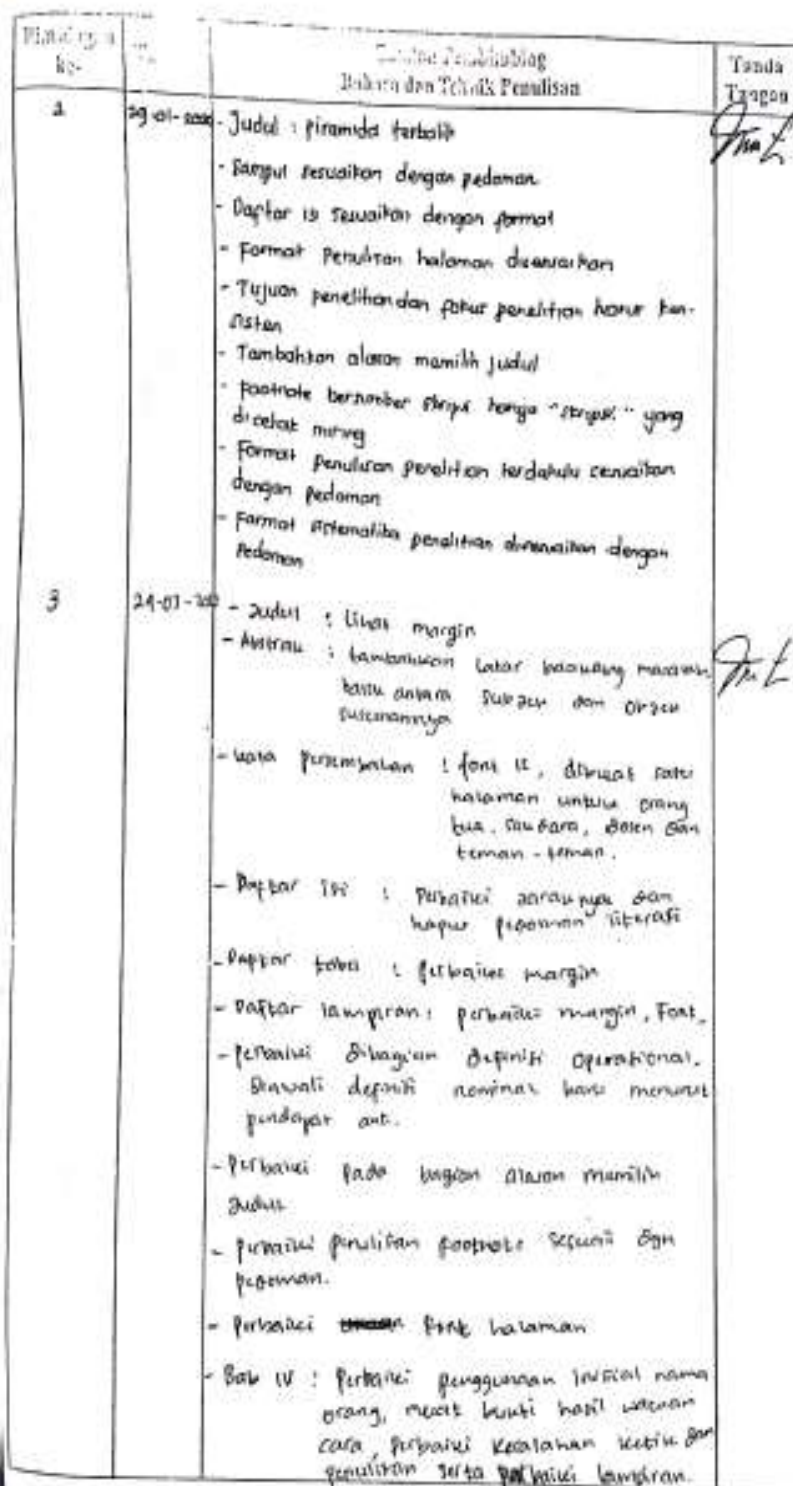 Bimbingan
ke-
Catatan Pembimbing
Bahasa dan Teknik Penulisan
Tanda
Tangan
2
29-01-2020
- Judul : piramida terbalik
- Sampul sesuaikan dengan pedoman
- Daftar isi sesuaikan dengan format
- Format penulisan halaman disesuaikan
- Tujuan penelitian dan fokus penelitian harus kon-
sisten
- Tambahkan alasan memilih judul
- Footnote bersumber skripsi hanya "skripsi" yang
dicetak miring
- Format penulisan penelitian terdahulu sesuaikan
dengan pedoman
- Format sistematika penelitian disesuaikan dengan
Pedoman
3
- Judul : Lihat margin
- Abstrak : tambahkan latar belakang masalah
baru antara subjek dan objek
- kata persembahan : font 12, dibuat satu
halaman untuk orang
tua, saudara, dosen dan
teman-teman.
- Daftar isi : Perbaiki jaraknya dan
hapus pedoman literasi
- Daftar tabel : perbaiki margin
- Daftar lampiran : perbaiki margin, Font.
- perbaiki dibagian definisi operasional.
Diawali definisi nominal baru menurut
pendapat
- Perbaiki pada bagian alasan memilih
Judul
- perbaiki penulisan footnote sesuai dgn
pedoman.
- perbaiki font halaman
- Bab IV : Perbaiki penggunaan inisial nama
orang, bukti hasil wawan
cara, perbaiki kesalahan ketik dan
penulisan serta perbaiki lampiran.